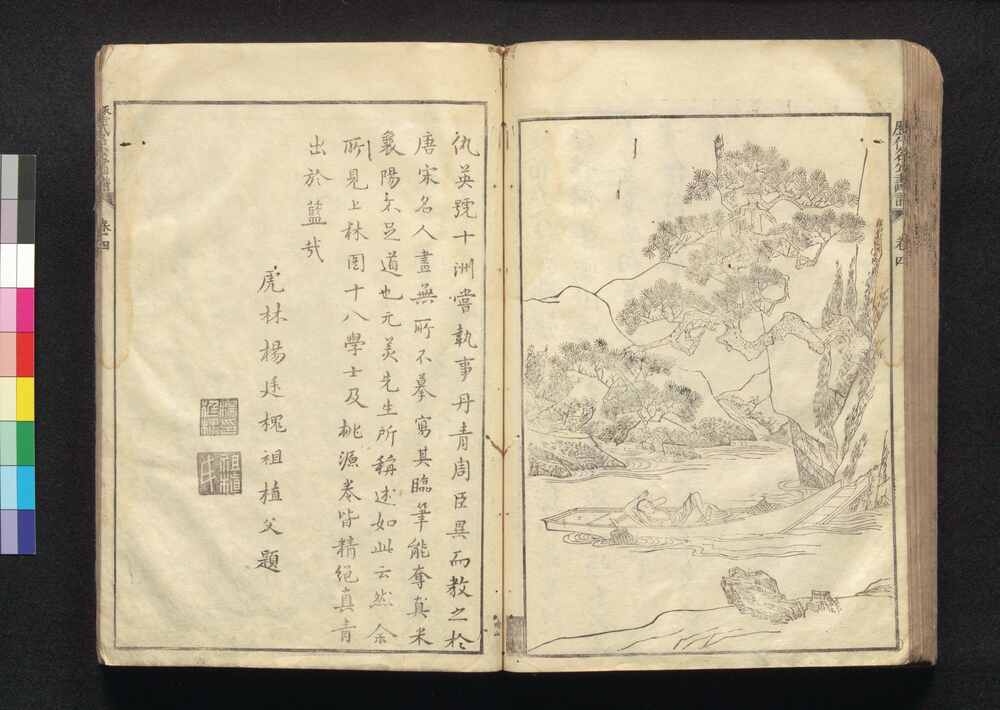 仇英號十洲嘗執事丹青周臣異而教之於
唐宋名人畫無所不摹寫其臨筆能奪真米
襄陽不足道也元美先生所稱述如此云然余
所見上林圖十八學士及桃源卷皆精絕真青
出於藍哉
虎林楊廷槐祖植父題
卷四
卷四